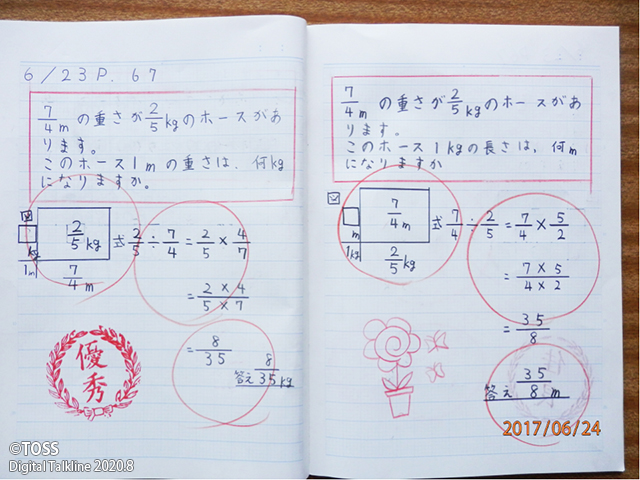 6/23 P.67
7/4 mの重さが2/5 kgのホースがあ
ります。
このホース1mの重さは、何kg
になりますか。
図
2/5 kg
kg
1m
7/4 m
式 2/5 ÷ 7/4 = 2/5 × 4/7
= 2×4/5×7
= 8/35
答え 8/35 kg
優秀
7/4 mの重さが2/5 kgのホースがあ
ります。
このホース1kgの長さは、何m
になりますか
図
7/4 m
m
1kg
2/5 kg
式 7/4 ÷ 2/5 = 7/4 × 5/2
= 7×5/4×2
= 35/8
答え 35/8 m
2017/06/24
©TOSS
Digital Talkline 2020.8